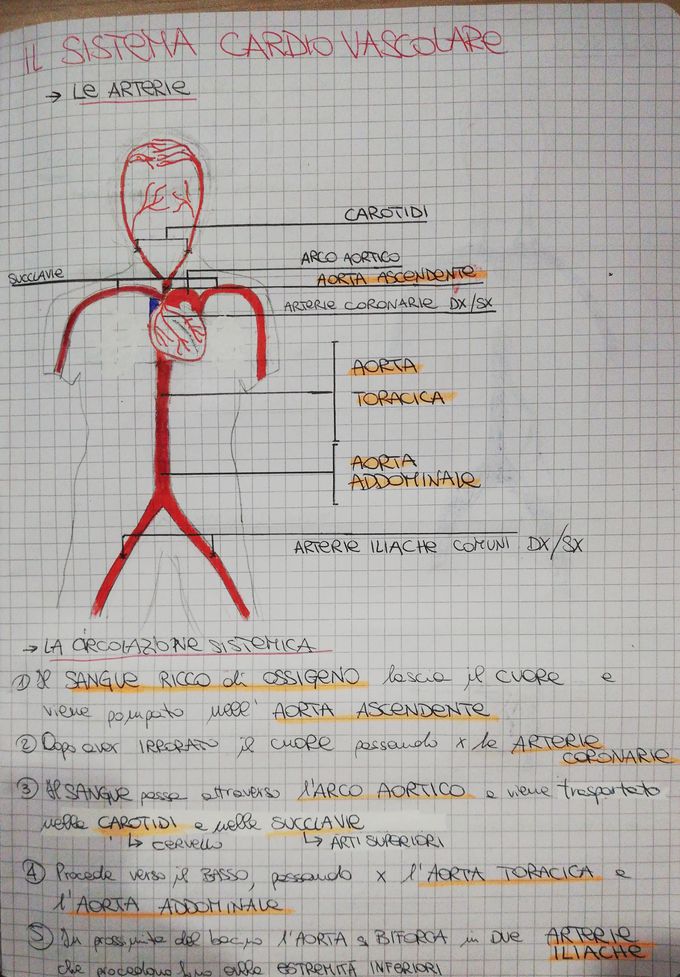 IL SISTEMA CARDIOVASCOLARE
→ LE ARTERIE
CAROTIDI
ARCO AORTICO
SUCCLAVIE
AORTA ASCENDENTE
ARTERIE CORONARIE DX/SX
AORTA
TORACICA
AORTA
ADDOMINALE
ARTERIE ILIACHE COMUNI DX/SX
→ LA CIRCOLAZIONE SISTEMICA
① Il SANGUE RICCO di OSSIGENO lascia il CUORE e
viene pompato nell' AORTA ASCENDENTE
② Dopo aver IRRORATO il cuore passando x le ARTERIE
CORONARIE
③ Il SANGUE passa attraverso l'ARCO AORTICO e viene trasportato
nelle CAROTIDI e nelle SUCCLAVIE
↳ CERVELLO ↳ ARTI SUPERIORI
④ Procede verso il BASSO, passando x l'AORTA TORACICA e
l'AORTA ADDOMINALE
⑤ In prossimità del bacino l'AORTA si BIFORCA in DUE ARTERIE
ILIACHE
che procedono fino alle ESTREMITÀ INFERIORI